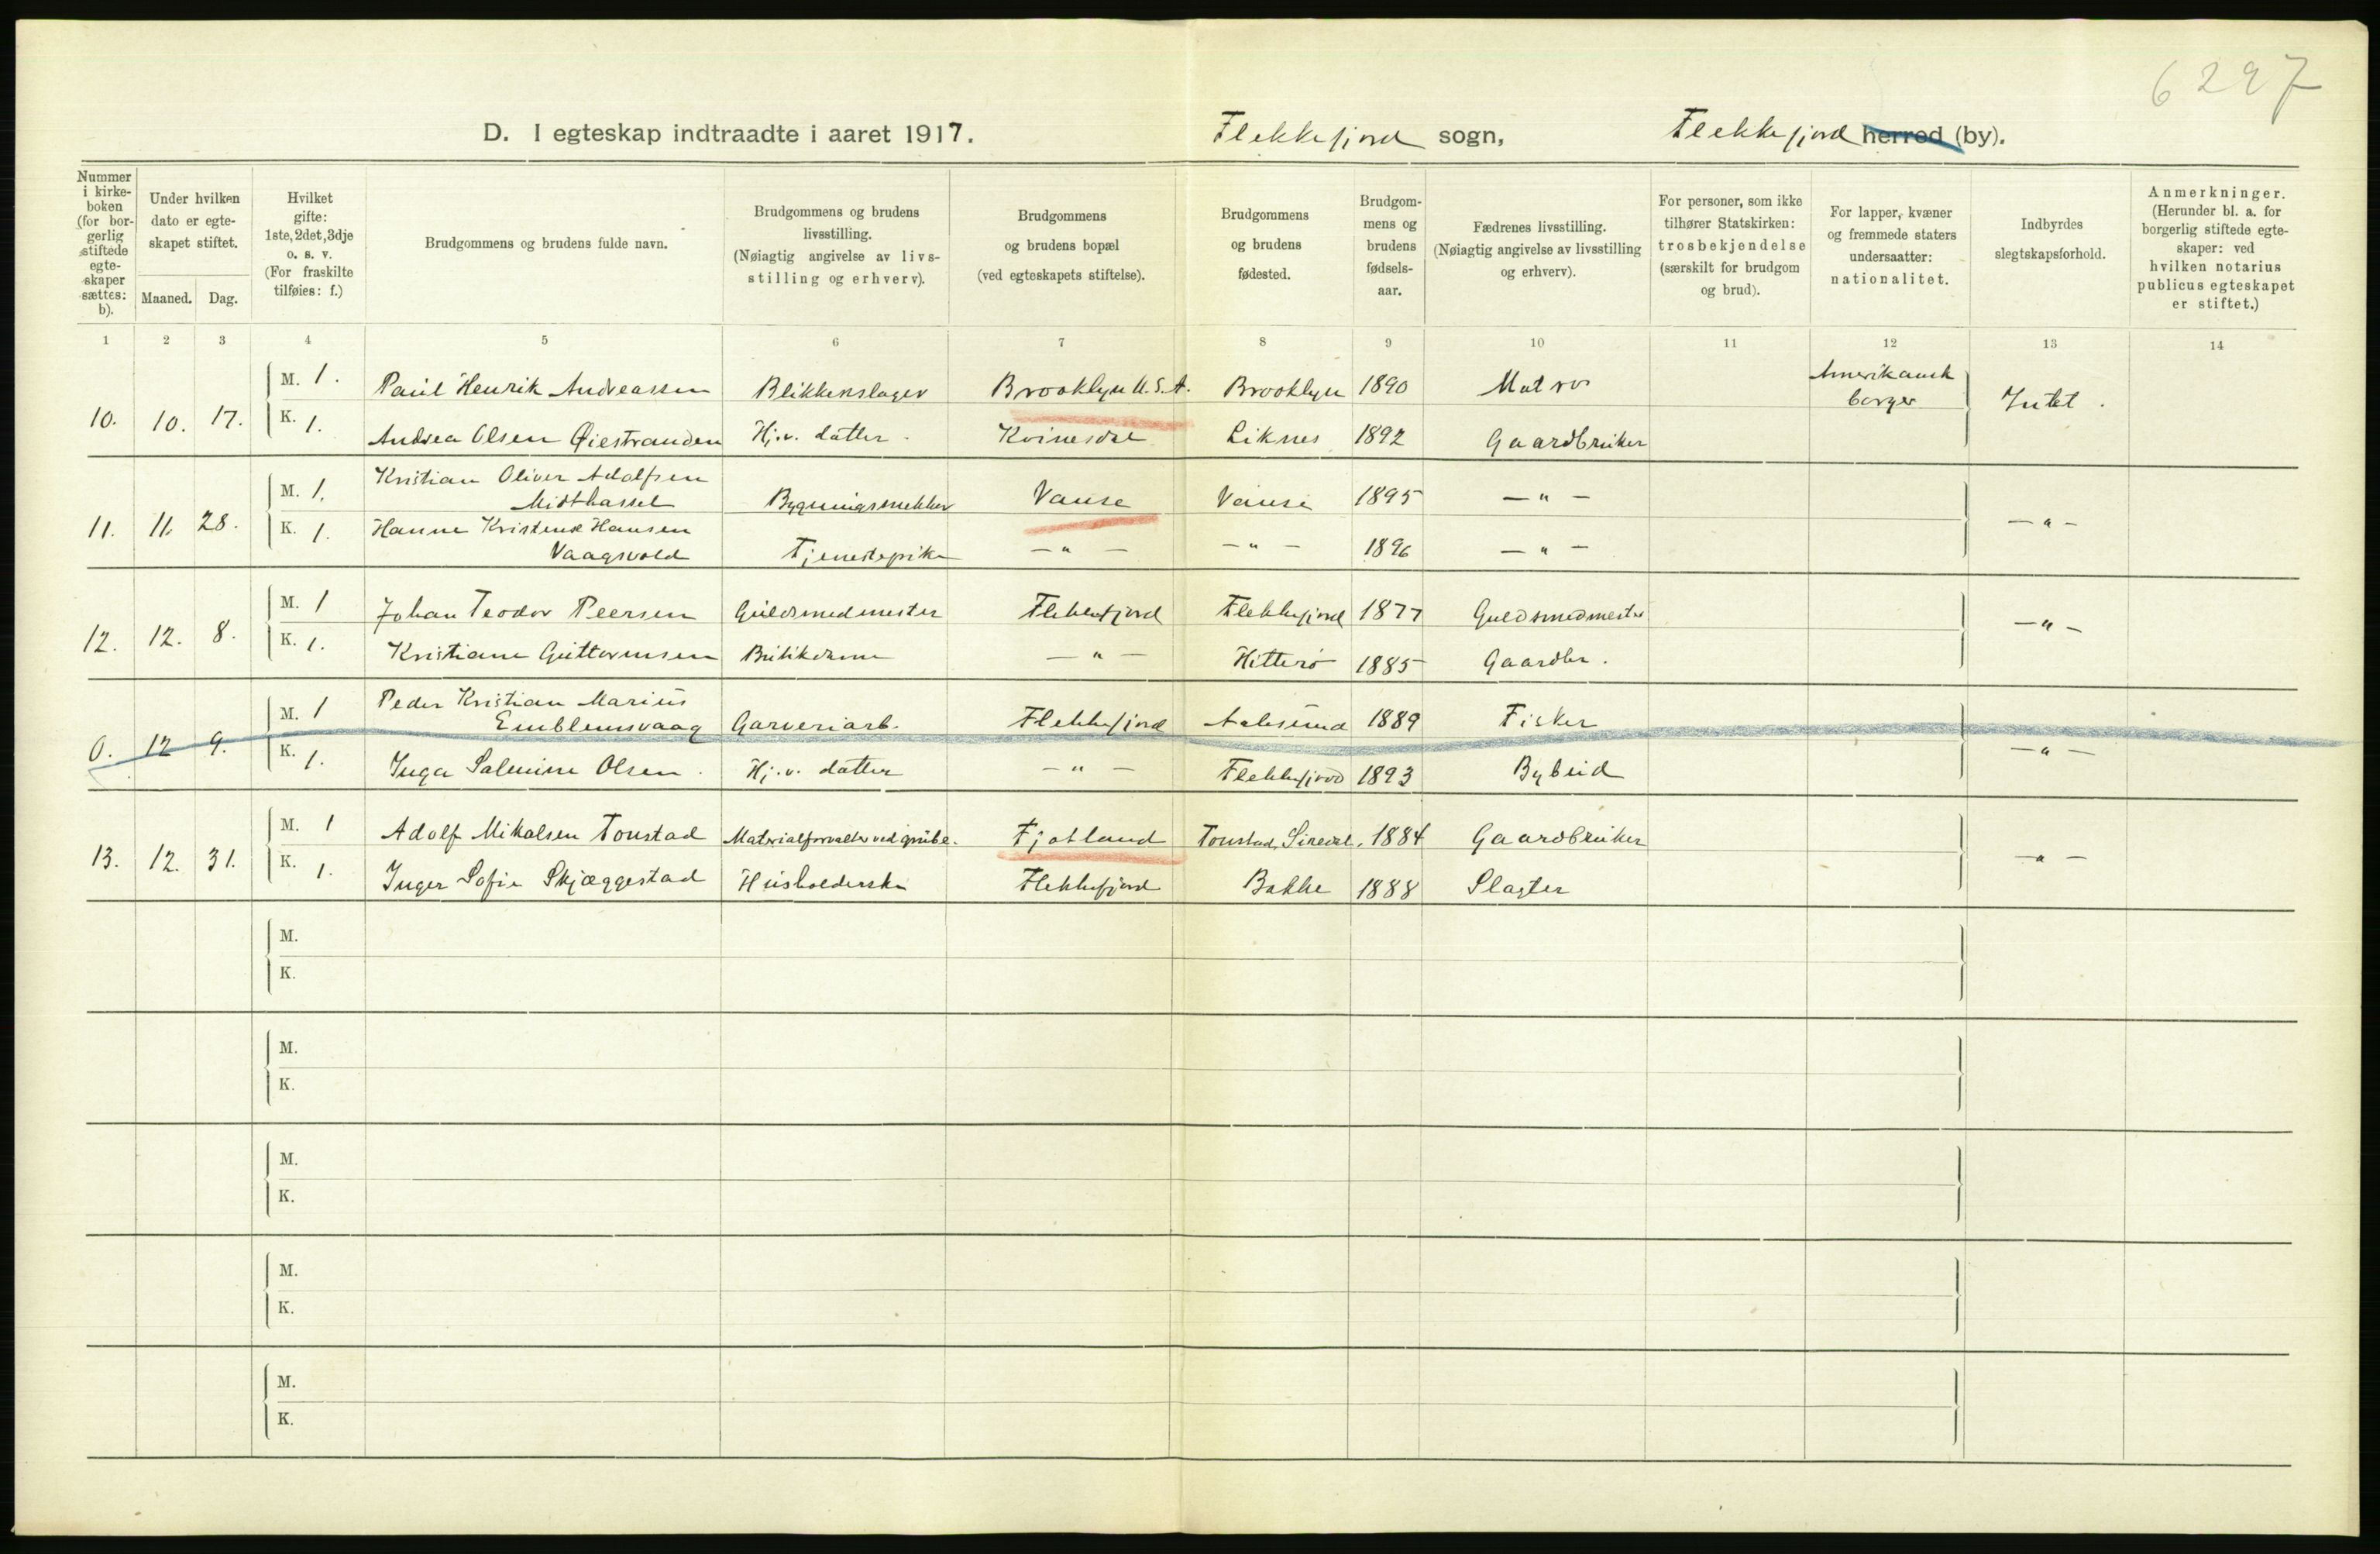 6297
D. I egteskap indtraadte i aaret 1917. Flekkefjord sogn, Flekkefjord herred (by).
Nummer i kirke-boken (for bor-gerlig stiftede egte-skaper sættes: b).
Under hvilken dato er egte-skapet stiftet.
Maaned. Dag.
Hvilket gifte: 1ste, 2det, 3dje o. s. v. (For fraskilte tilføies: f.)
Brudgommens og brudens fulde navn.
Brudgommens og brudens livsstilling. (Nøiagtig angivelse av livs-stilling og erhverv).
Brudgommens og brudens bopæl (ved egteskapets stiftelse).
Brudgommens og brudens fødested.
Brudgom-mens og brudens fødsels-aar.
Fædrenes livsstilling. (Nøiagtig angivelse av livsstilling og erhverv).
For personer, som ikke tilhører Statskirken: trosbekjendelse (særskilt for brudgom og brud).
For lapper, kvæner og fremmede staters undersaatter: nationalitet.
Indbyrdes slegtskapsforhold.
Anmerkninger. (Herunder bl. a. for borgerlig stiftede egte-skaper: ved hvilken notarius publicus egteskapet er stiftet.)
1 2 3 4 5 6 7 8 9 10 11 12 13 14
M. 1. Paul Henrik Andreassen Blikkenslager Brooklyn U.S.A. Brooklyn 1890 Matros Amerikansk borger
10. 10. 17. K. 1. Andrea Olsen Øiestranden Hj.v. datter. Kvinesdal Liknes 1892 Gaardbruker Intet.
M. 1. Kristian Oliver Adolfsen
Midthassel Bygningssnekker Vanse Vanse 1895 — " —
11. 11. 28. K. 1. Hanne Kristense Hansen — " —
Vaagsvold Tjenestepike — " — — " — 1896 — " —
M. 1 Johan Teodor Peersen Guldsmedmester Flekkefjord Flekkefjord 1877 Guldsmedmester
12. 12. 8. K. 1. Kristiane Guttormsen Butikdame — " — Hitterø 1885 Gaardbr. — " —
M. 1 Peder Kristian Marius
Emblemsvaag Garveriarb. Flekkefjord Aalesund 1889 Fisker
0. 12 9. K. 1. Inga Salmine Olsen. Hj.v. datter — " — Flekkefjord 1893 Bybud — " —
M. 1 Adolf Mikalsen Tonstad Materialforvalter ved grube. Fjotland Tonstad, Siredal. 1884 Gaardbruker
13. 12. 31. K. 1. Inger Sofie Skjæggestad Husholderske Flekkefjord Bakke 1888 Slagter — " —
M.
K.
M.
K.
M.
K.
M.
K.
M.
K.